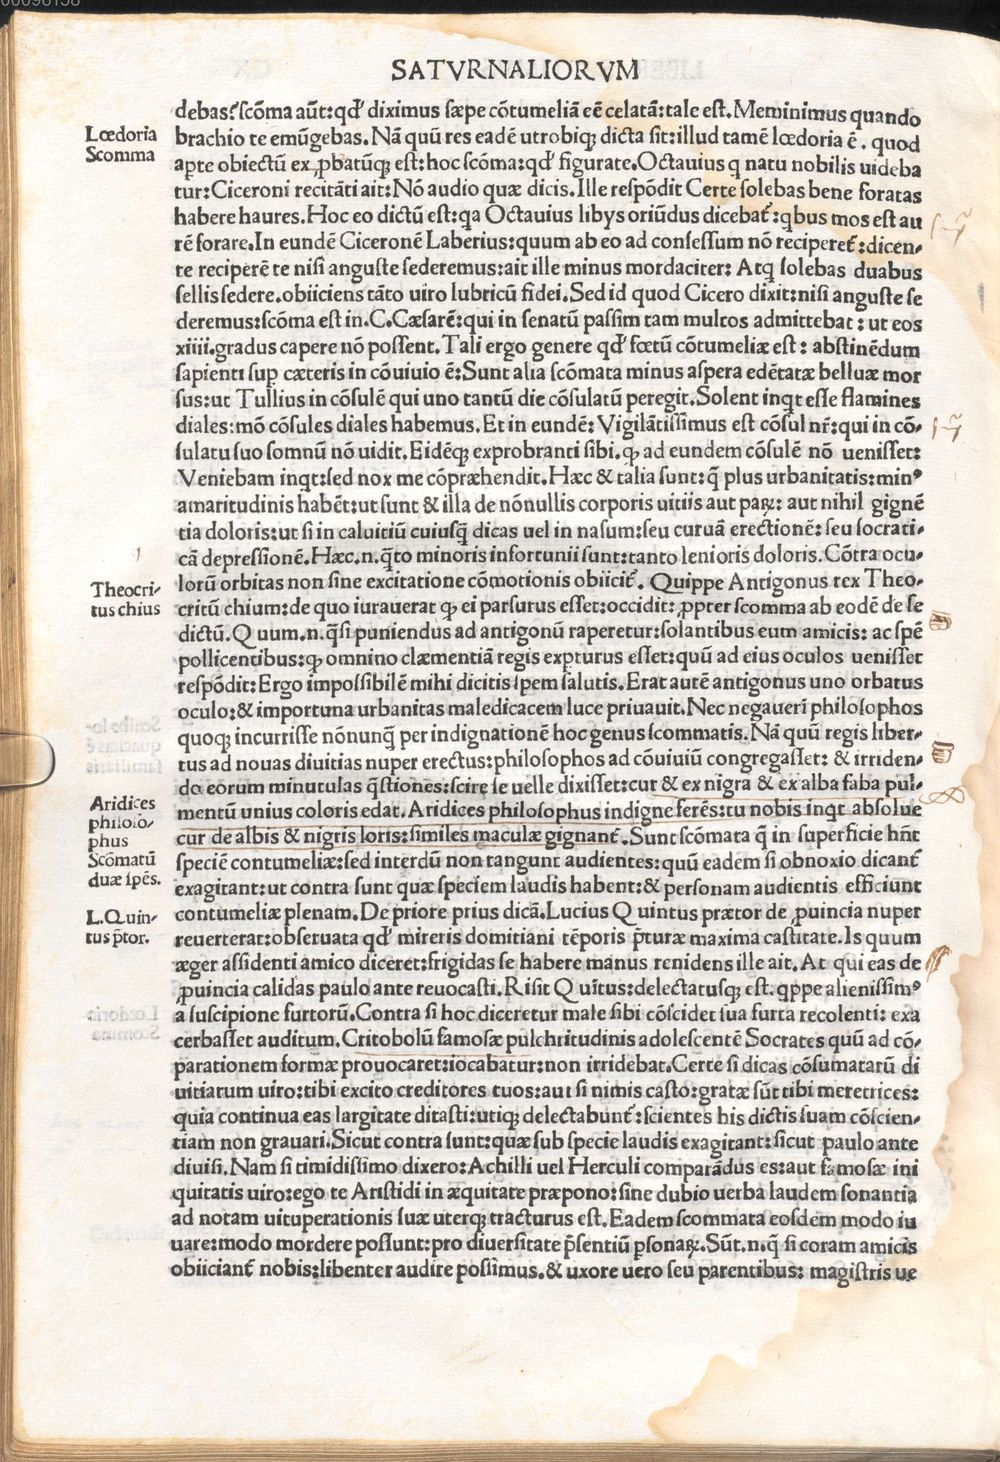 00096158
SATVRNALIORVM
debas?scōma aūt:qd' diximus sæpe cōtumeliā eē celatā:tale est.Meminimus quando
Lœdoria
brachio te emūgebas.Nā quū res eadē utrobiq; dicta sit:illud tamē lœdoria ē. quod
Scomma
apte obiectū ex ꝓbatūq; est:hoc scōma:qd' figurate.Octauius q natu nobilis uideba
tur:Ciceroni recitāti ait:Nō audio quæ dicis.Ille respōdit Certe solebas bene foratas
habere haures.Hoc eo dictū est:qa Octauius libys oriūdus dicebat̄:qbus mos est au
rē forare.In eundē Ciceronē Laberius:quum ab eo ad consessum nō reciperet̄:dicen-
te reciperē te nisi anguste sederemus:ait ille minus mordaciter: Atq solebas duabus
sellis sedere.obiiciens tāto uiro lubricū fidei.Sed id quod Cicero dixit:nisi anguste se
deremus:scōma est in.C.Cæsarē:qui in senatū passim tam multos admittebat : ut eos
xiiii.gradus capere nō possent.Tali ergo genere qd' fœtū cōtumeliæ est : abstinēdum
sapienti sup cæteris in cōuiuio ē:Sunt alia scōmata minus aspera edētatæ belluæ mor
sus:ut Tullius in cōsulē qui uno tantū die cōsulatū peregit.Solent inqt esse flamines
diales:mō cōsules diales habemus.Et in eundē: Vigilātissimus est cōsul nr̄:qui in cō-
sulatu suo somnū nō uidit.Eidēq; exprobranti sibi.ꝙ ad eundem cōsulē nō uenisset:
Veniebam inqt:sed nox me cōpræhendit.Hæc & talia sunt:q̄ plus urbanitatis:minꝰ
amaritudinis habēt:ut sunt & illa de nōnullis corporis uitiis aut paꝝ: aut nihil gignē
tia doloris:ut si in caluitiū cuiusq̄ dicas uel in nasum:seu curuā erectionē: seu socrati-
cā depressionē.Hæc.n.q̄to minoris infortunii sunt:tanto lenioris doloris.Cōtra ocu-
Theocri-
lorū orbitas non sine excitatione cōmotionis obiicit̄. Quippe Antigonus rex Theo-
tus chius
critū chium:de quo iurauerat ꝙ ei parsurus esset:occidit: ꝓpter scomma ab eodē de se
dictū.Quum.n.q̄si puniendus ad antigonū raperetur:solantibus eum amicis: ac spē
pollicentibus:ꝙ omnino clæmentiā regis expturus esset:quū ad eius oculos uenisset
respōdit:Ergo impossibilē mihi dicitis spem salutis.Erat autē antigonus uno orbatus
oculo:& importuna urbanitas maledicacem luce priuauit.Nec negaueri philosophos
quoq; incurrisse nōnunq̄ per indignationē hoc genus scommatis. Nā quū regis liber-
tus ad nouas diuitias nuper erectus:philosophos ad cōuiuiū congregasset: & irriden-
do eorum minutulas q̄stiones:scire se uelle dixisset:cur & ex nigra & ex alba faba pul-
Aridices
mentū unius coloris edat.Aridices philosophus indigne ferēs:tu nobis inqt absolue
philoso-
phus
cur de albis & nigris loris:similes maculæ gignant̄.Sunt scōmata q̄ in superficie hn̄t
Scōmatū
speciē contumeliæ:sed interdū non tangunt audientes:quū eadem si obnoxio dicant̄
duæ spēs.
exagitant:ut contra sunt quæ speciem laudis habent:& personam audientis efficiunt
L.Quin-
contumeliæ plenam.De priore prius dicā.Lucius Quintus prætor de ꝓuincia nuper
tus p̄tor.
reuerterat:obseruata qd' mireris domitiani tēporis p̄turæ maxima castitate.Is quum
æger assidenti amico diceret:frigidas se habere manus renidens ille ait.At qui eas de
ꝓuincia calidas paulo ante reuocasti.Risit Quītus:delectatusq; est.qppe alienissimꝰ
a suscipione furtorū.Contra si hoc diceretur male sibi cōscidet sua furta recolenti: exa
cerbasset auditum.Critobolū famosæ pulchritudinis adolescentē Socrates quū ad cō-
parationem formæ prouocaret:iocabatur:non irridebat.Certe si dicas cōsumatarū di
uitiarum uiro:tibi excito creditores tuos:aut si nimis casto:gratæ sūt tibi meretrices:
quia continua eas largitate ditasti:utiq; delectabunt̄:scientes his dictis suam cōscien-
tiam non grauari.Sicut contra sunt:quæ sub specie laudis exagitant:sicut paulo ante
diuisi.Nam si timidissimo dixero:Achilli uel Herculi comparādus es:aut famosæ ini
quitatis uiro:ego te Aristidi in æquitate præpono:sine dubio uerba laudem sonantia
ad notam uituperationis suæ uterq; tracturus est.Eadem scommata eosdem modo iu
uare:modo mordere possunt:pro diuersitate p̄sentiū psonaꝝ.Sūt.n.q̄ si coram amicis
obiiciant̄ nobis:libenter audire possimus.& uxore uero seu parentibus: magistris ue